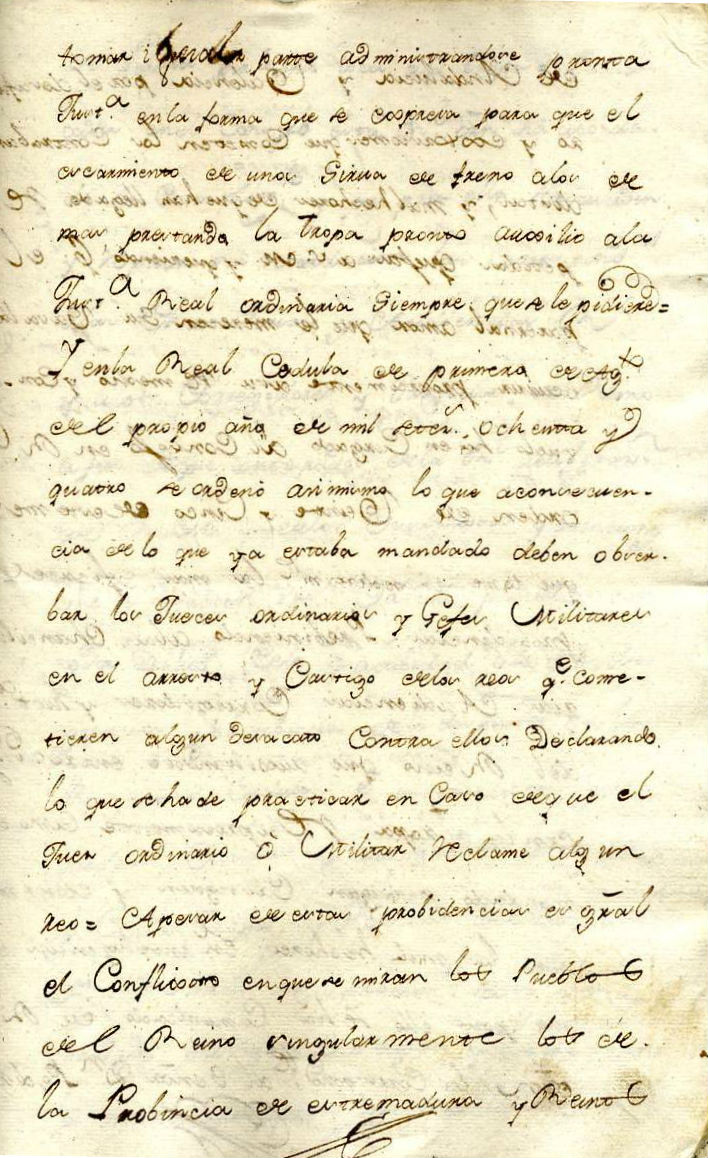 tomar iguales parte administrandose pronta
Just.ª en la forma que se expresa para que el
escarmiento de unos Sirva de freno a los de
mas, prestando la Tropa pronto auxilio a la
Just.ª Real ordinaria Siempre que se le pidiere=
Y en la Real Cedula de primero de Ag.to
del propio año de mil setec.s ochenta y
quatro se ordenó asimismo lo que aconsecuen-
cia de lo que ya estaba mandado deben obser-
bar los Jueces ordinarios y Gefes Militares
en el arresto y Castigo de los reos q.e come-
tieren algun desacato Contra ellos Declarando
lo que se ha de practicar en Caso de que el
Juez ordinario ó Militar Reclame algun
reo= Apesar de estas probidencias es gral
el Conflicto en que se miran los Pueblos
del Reino singularmente los de
la Probincia de estremadura y Reinos